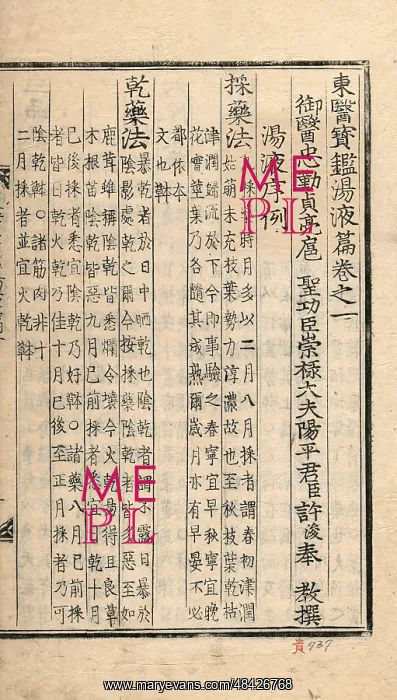 東醫寶鑑湯液篇卷之一
御醫忠勤貞亮扈 聖功臣崇祿大夫陽平君臣許浚奉 教撰
湯液序例
採藥法
採時月多以二月八月採者謂春初津潤
始萌未充枝葉勢力淳濃故也至秋枝葉乾枯
津潤歸流於下今即事驗之春寧宜早秋寧宜晚
花實莖葉乃各隨其成熟爾歲月亦有早晏不必
都依本
文也
乾藥法
暴乾者於日中晒乾也陰乾者謂不露日暴於
陰影處乾之爾今按採藥陰乾者皆多惡至如
鹿茸雖稱陰乾皆悉爛令壞今火乾易得且良草
木根苗陰乾皆惡九月已前採者悉宜乾十月
已後採者悉宜陰乾乃好○諸藥八月已前採
者皆日乾火乾乃佳十月已後至正月採者乃可
陰乾○諸筋肉非十
二月採者並宜火乾
貴737
ME
PL
ME
PL
www.maryevans.com/48426768